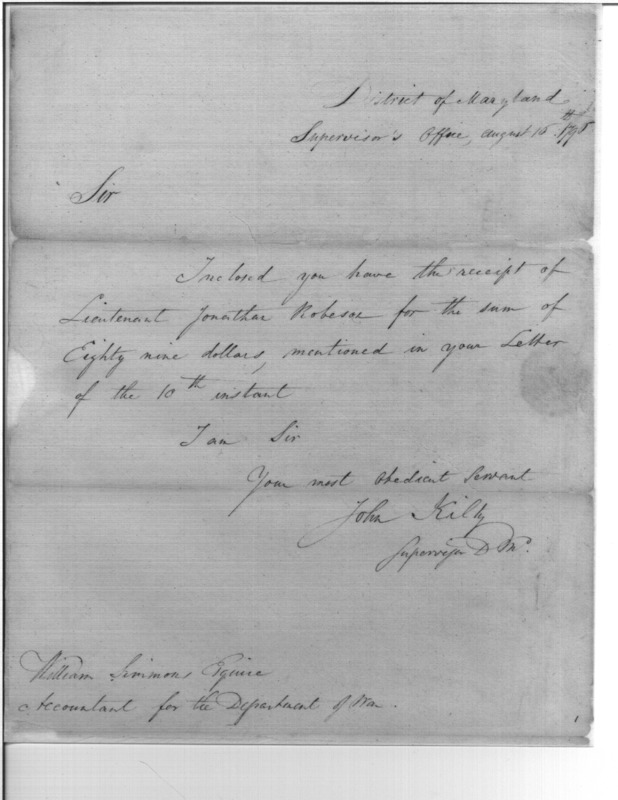 District of Maryland
Supervisor's Office, august 15th 1798
Sir
Inclosed you have the receipt of
Lieutenant Jonathan Robeson for the sum of
Eighty nine dollars, mentioned in your Letter
of the 10th instant
I am Sir
Your most Obedient Servant
John Kilty
Supervisor D Md.
William Simmons Esquire
Accountant for the Department of War.